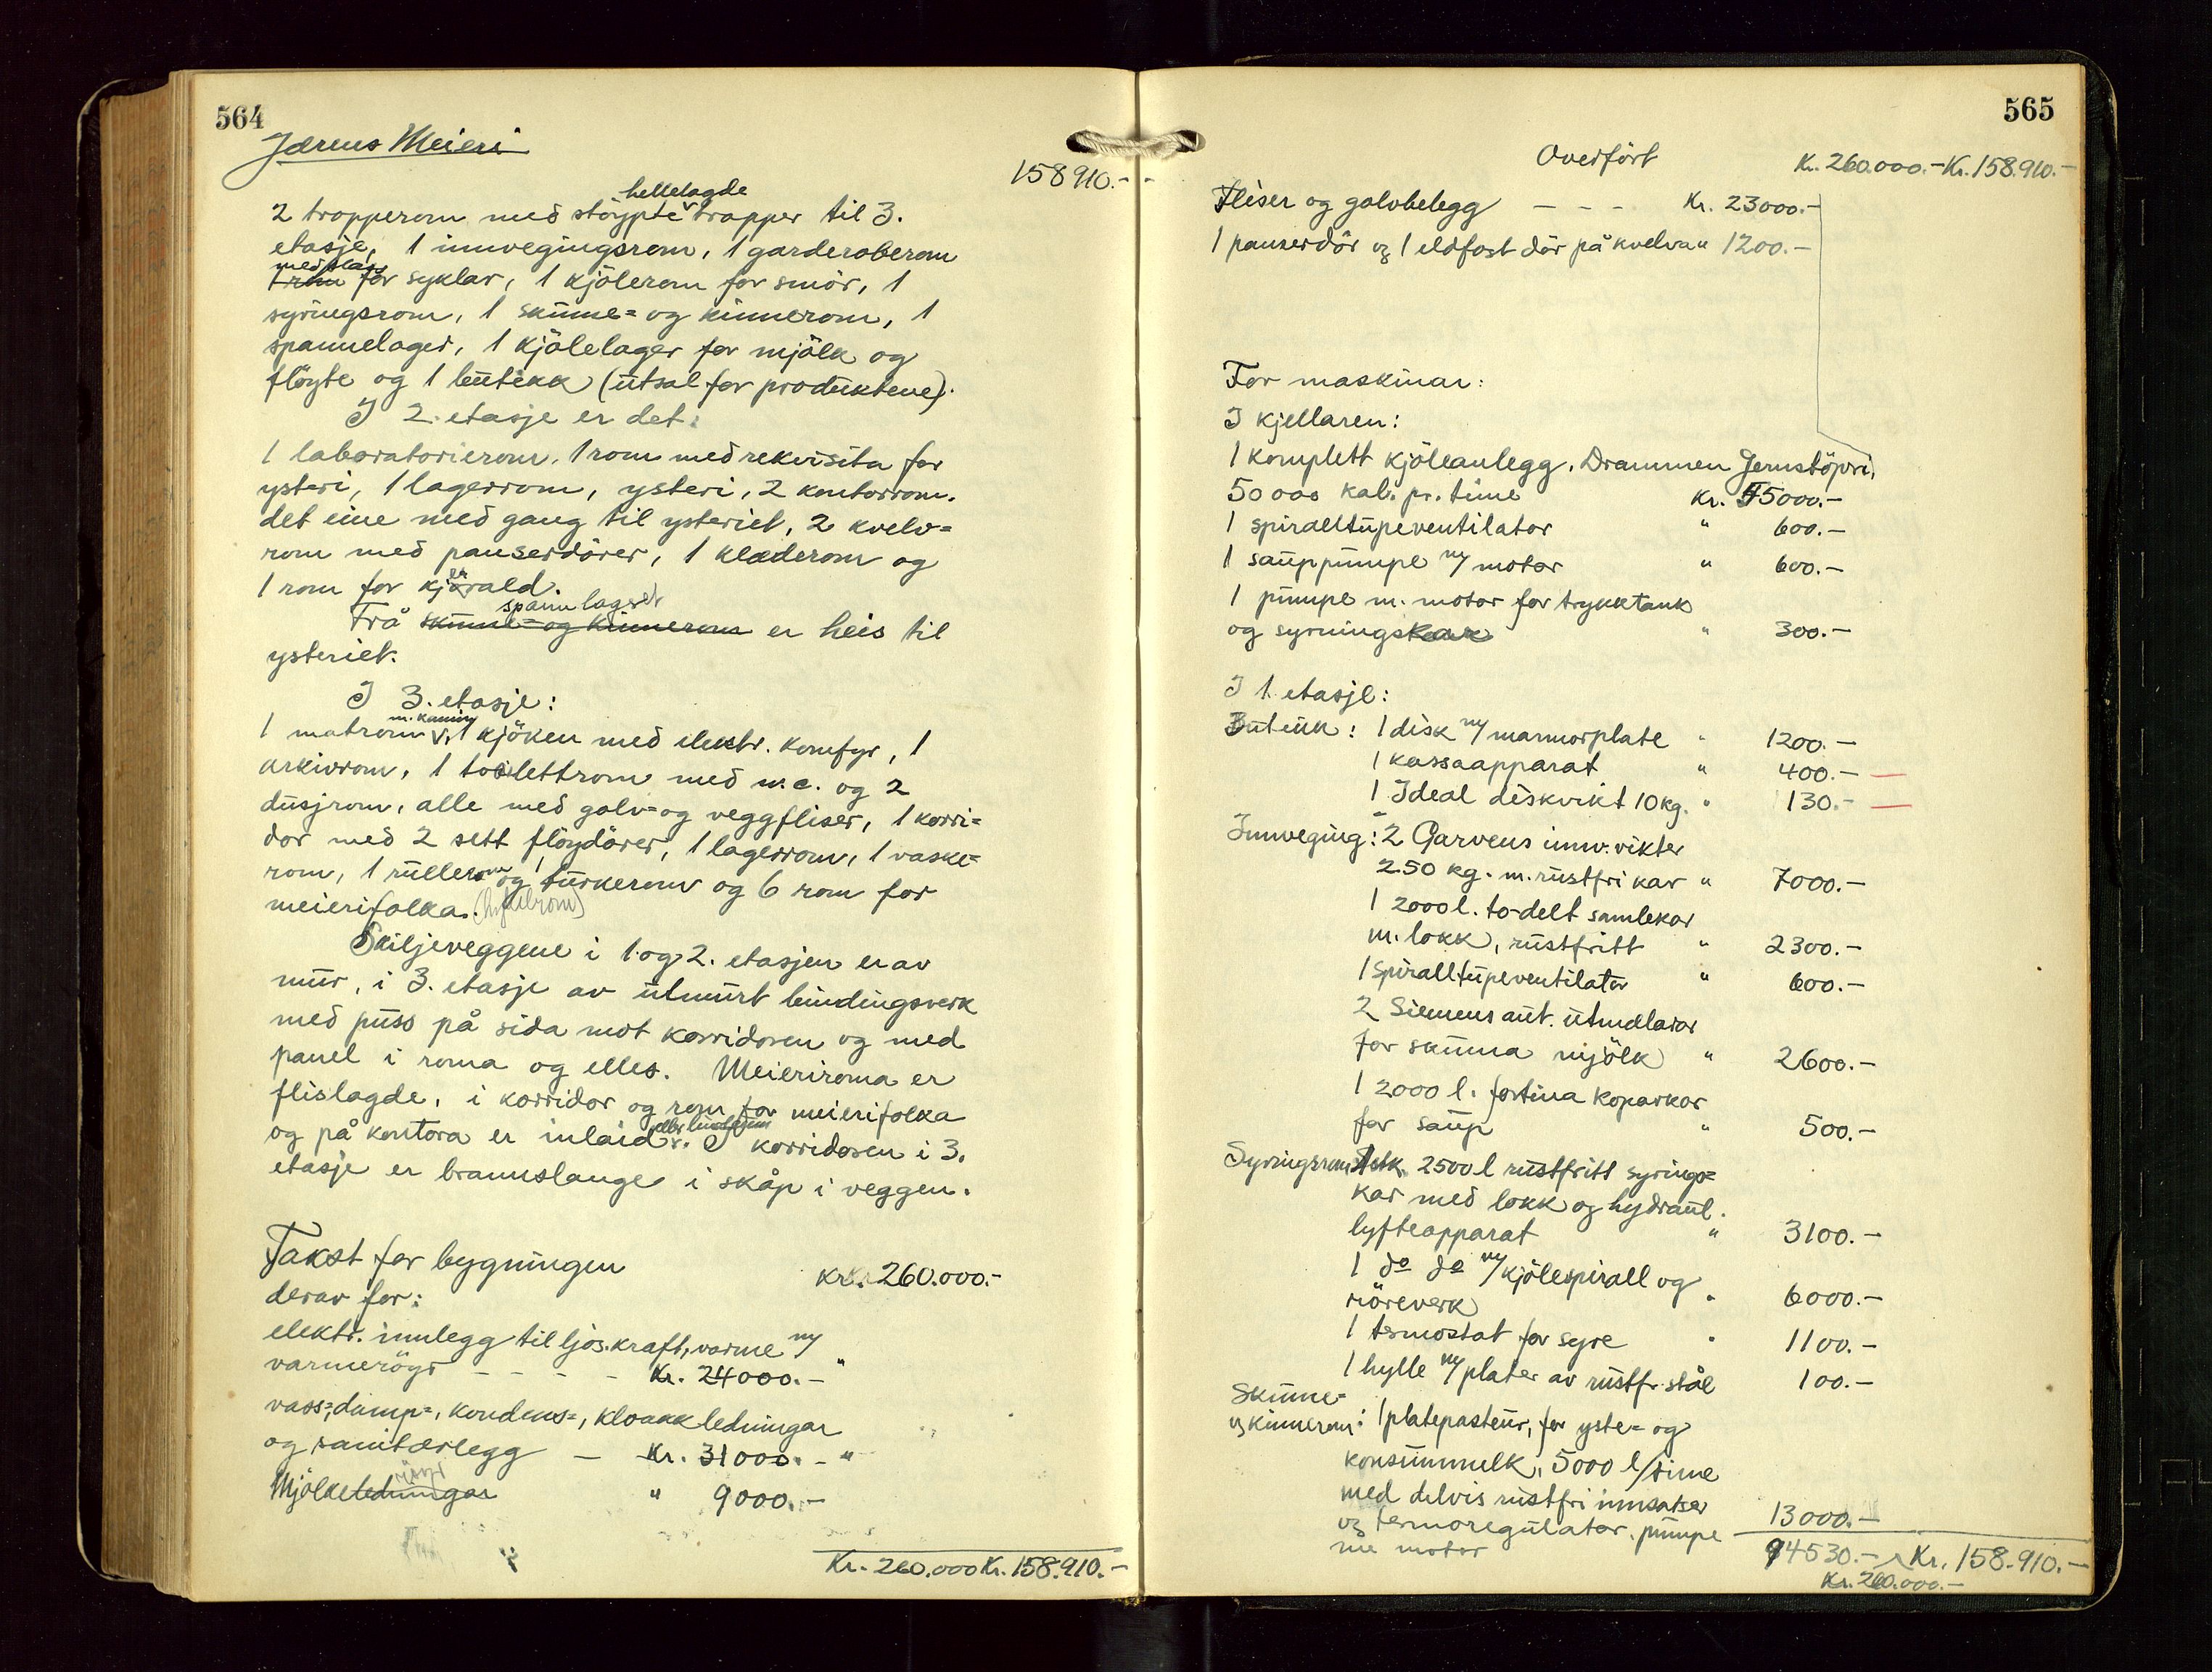 564
Jærens Meieri
158910.-
hellelagde
2 trapperom med stöypte trapper til 3.
etasje, 1 innvegingsrom, 1 garderoberom
med plass
1 rom for syklar, 1 kjölerom for smör, 1
syringsrom, 1 skumme- og kinnerom, 1
spannelager, 1 kjölelager for mjölk og
flöyte og 1 butikk (utsal for produktene).
I 2. etasje er det:
1 laboratorierom, 1 rom med rekvisita for
ysteri, 1 lagerrom, ysteri, 2 kontorrom.
det eine med gang til ysteriet, 2 kvelv-
rom med panserdörer, 1 klæderom og
1 rom for kjørald.
spannlager
Frå skumme- og kinnerom er heis til
ysteriet.
I 3. etasje:
m. kamin
1 matrom, 1 kjöken med elektr. komfyr, 1
arkivrom, 1 toalettrom med w.c. og 2
dusjrom, alle med golv- og veggfliser, 1 korri-
dor med 2 sett flöydörer, 1 lagerrom, 1 vaske-
rom, 1 rullerom og turkerom og 6 rom for
meierifolka. (hybelrom)
Skiljeveggene i 1. og 2. etasjen er av
mur, i 3. etasje av utmurt bindingsverk
med puss på sida mot korridoren og med
panel i roma og elles. Meieriroma er
flislagde, i korridor og rom for meierifolka
eller linoleum
og på kontora er inlaid. I korridoren i 3.
etasje er brannslange i skåp i veggen.
Takst for bygningen kr. 260.000.-
derav for:
elektr. innlegg til ljos, kraft, varme m/
varmeröyr - - - - Kr. 24000.- "
vass-, damp-, kondens-, kloakkledningar
og sanitærlegg - Kr. 31000.- "
röyr
Mjölkeledningar " 9000.-
Kr. 260.000 Kr. 158.910.-
565
Overfört Kr. 260.000.- Kr. 158.910.-
Fliser og golvbelegg - - - Kr. 23000.-
1 panserdör og 1 eldfast dör på kvelva " 1200.-
For maskinar:
I kjellaren:
1 komplett kjöleanlegg, Drammen Jernstöperi,
50 000 kal. pr. time Kr. 55000.-
1 spiralltupeventilator " 600.-
1 sauppumpe m/ motor " 600.-
1 pumpe m. motor for trykktank
og syrningskar " 300.-
I 1. etasje:
Butikk: 1 disk m/ marmorplate " 1200.-
1 kassaapparat " 400.-
1 Ideal diskvikt 10 kg. " 130.-
Innveging: 2 Garvens innv. vikter
250 kg. m. rustfri kar " 7000.-
1 2000 l. to-delt samlekar
m. lokk, rustfritt " 2300.-
1 spiralltupeventilator " 600.-
2 Siemens aut. utmålarar
for skumma mjölk " 2600.-
1 2000 l. fortina koparkar
for saup " 500.-
Syringsrom: 1 stk. 2500 l rustfritt syrings-
kar med lokk og hydraul.
lyfteapparat " 3100.-
1 do do m/ kjölespirall og
röreverk " 6000.-
1 termostat for syre " 1100.-
1 hylle m/ plater av rustfr. stål 100.-
Skumme-
og kinnerom: 1 platepasteur, for yste- og
konsummelk, 5000 l/time
med delvis rustfri innsatser
og termoregulator, pumpe 13000.-
me motor
94530.- Kr. 158.910.-
Kr. 260.000.-